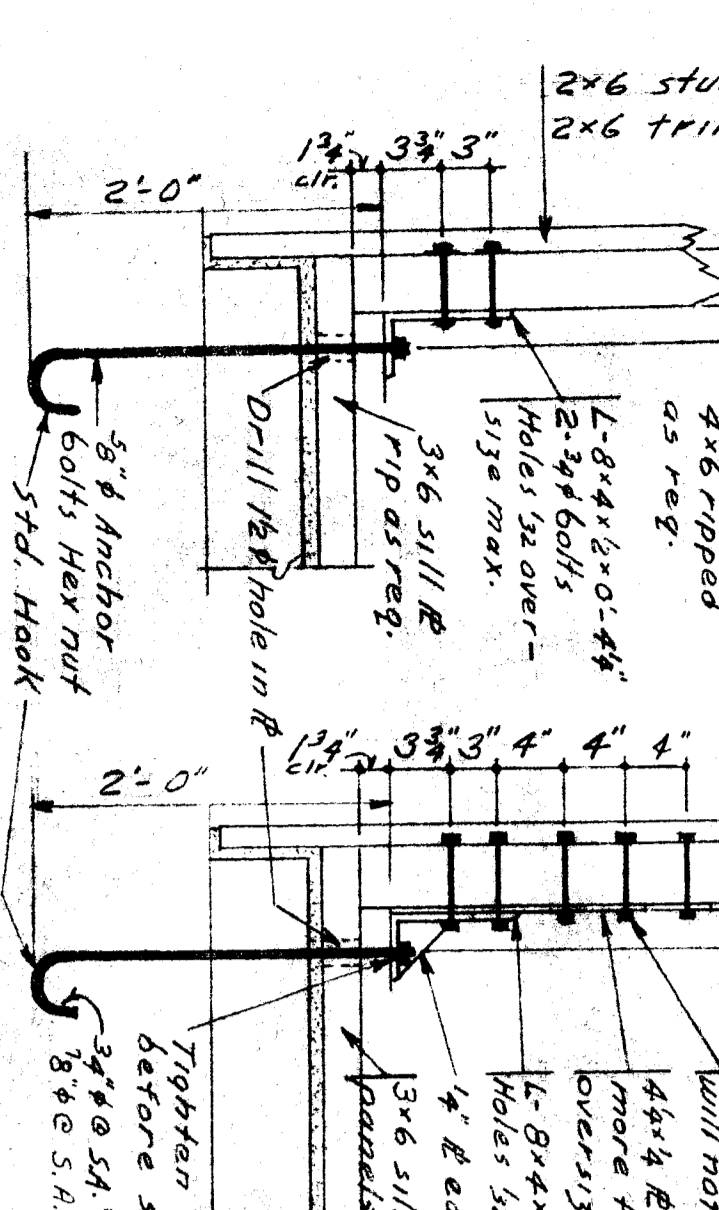 2×6 stu
2×6 tri
1 3/4" 3 3/4" 3"
clr.
2'-0"
4×6 ripped
as req.
L-8×4×1/2×0'-4 1/4"
2-3/4φ bolts
Holes 1/32 over-
size max.
3×6 sill ℄
rip as req.
Drill 1 1/2 φ hole in ℄
5/8" φ Anchor
bolts Hex nut
Std. Hook
1 3/4" 3 3/4" 3" 4" 4" 4"
clr.
2'-0"
will not
4 1/4×1/4 ℄
more t
oversiz
L-8×4×
Holes 1/3
1/4" ℄ ea
3×6 sil
panels
Tighten
before s
3/4" φ @ S.A.
7/8" φ @ S.A.